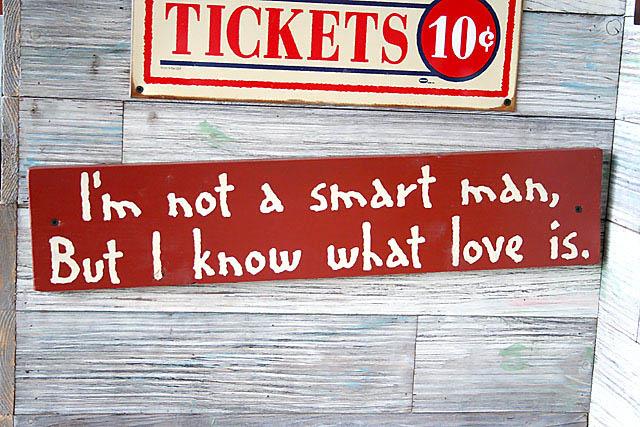 TICKETS 10¢
I'm not a smart man,
But I know what love is.